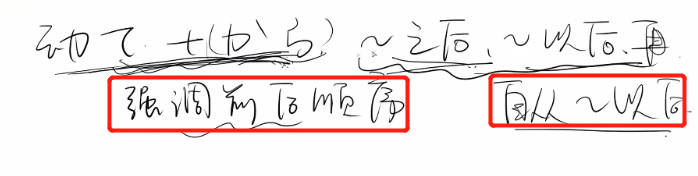 动て+(から) ~之后、~以后、再
强调前后顺序 自从~以后